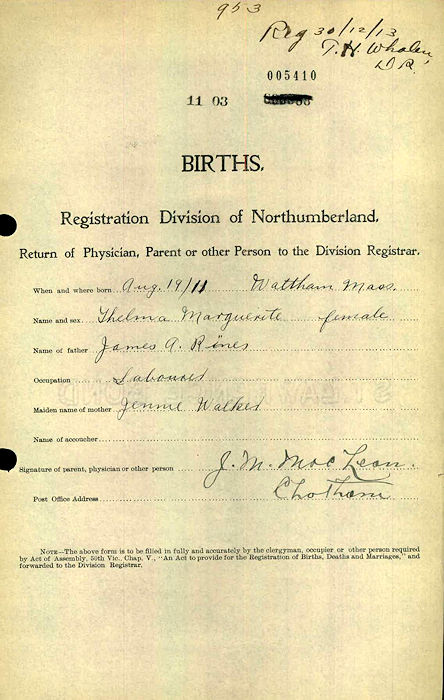 953
Reg 30/12/13
T. H. Whalen
D R.
005410
11 03
BIRTHS.
Registration Division of Northumberland.
Return of Physician, Parent or other Person to the Division Registrar.
When and where born Aug. 19/11 Waltham Mass.
Name and sex Thelma Marguerite female
Name of father James A. Rines
Occupation Labourer
Maiden name of mother Jennie Walker
Name of accoucher
Signature of parent, physician or other person J. M. MacLean.
Post Office Address Chatham
NOTE—The above form is to be filled in fully and accurately by the clergyman, occupier or other person required
by Act of Assembly, 50th Vic., Chap. V., "An Act to provide for the Registration of Births, Deaths and Marriages," and
forwarded to the Division Registrar.